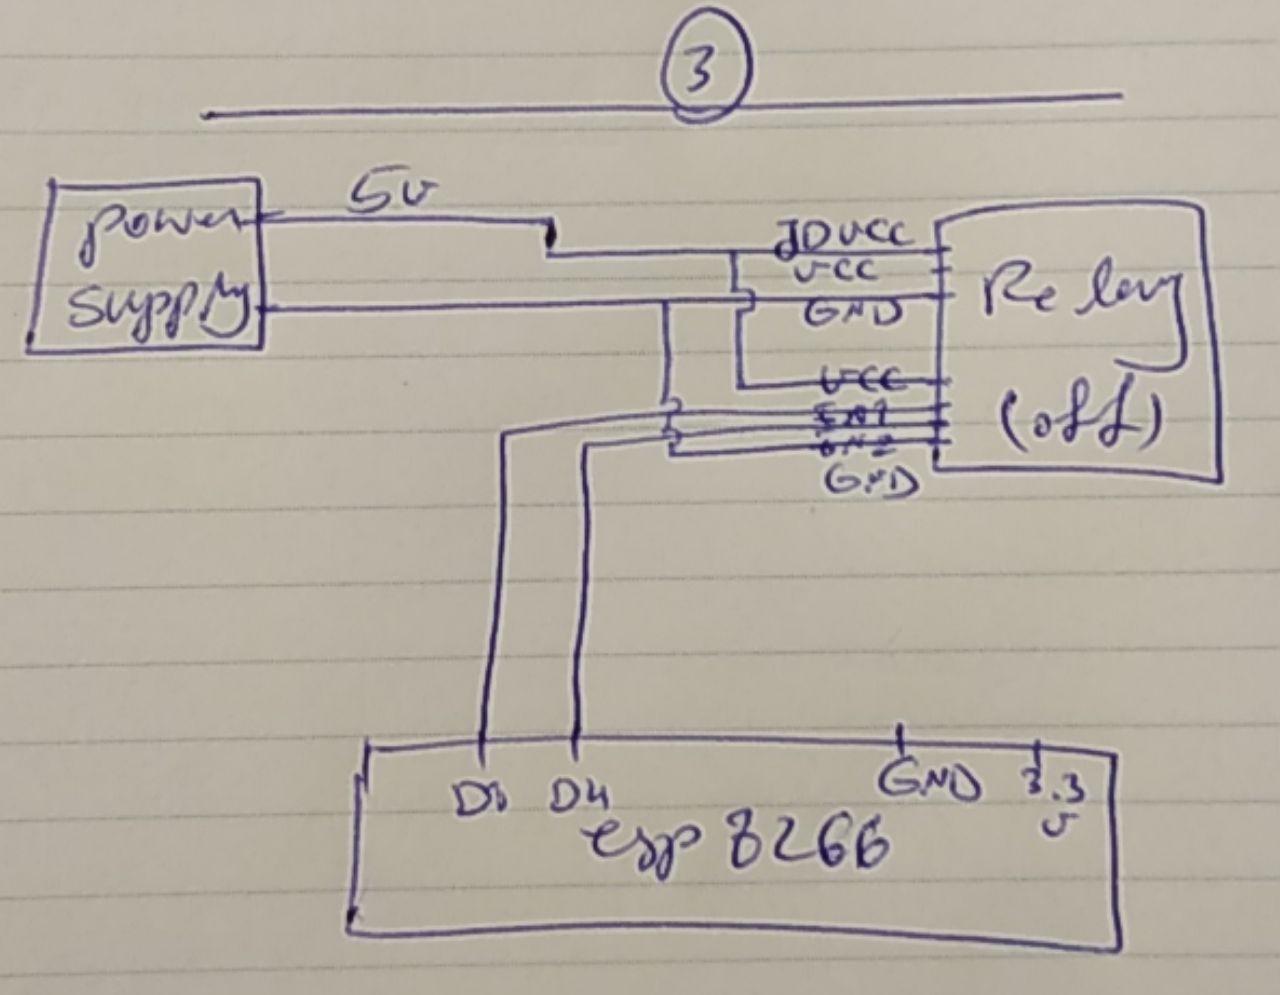 3
5v
power
supply
JDVCC
VCC
GND
Relay
VCC
IN1
IN2
GND
(off)
D3 D4 GND 3.3
v
esp 8266